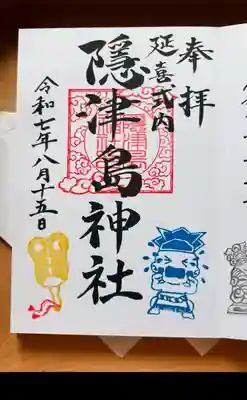 奉拝
延喜式内
隠津島神社
令和七年八月十五日